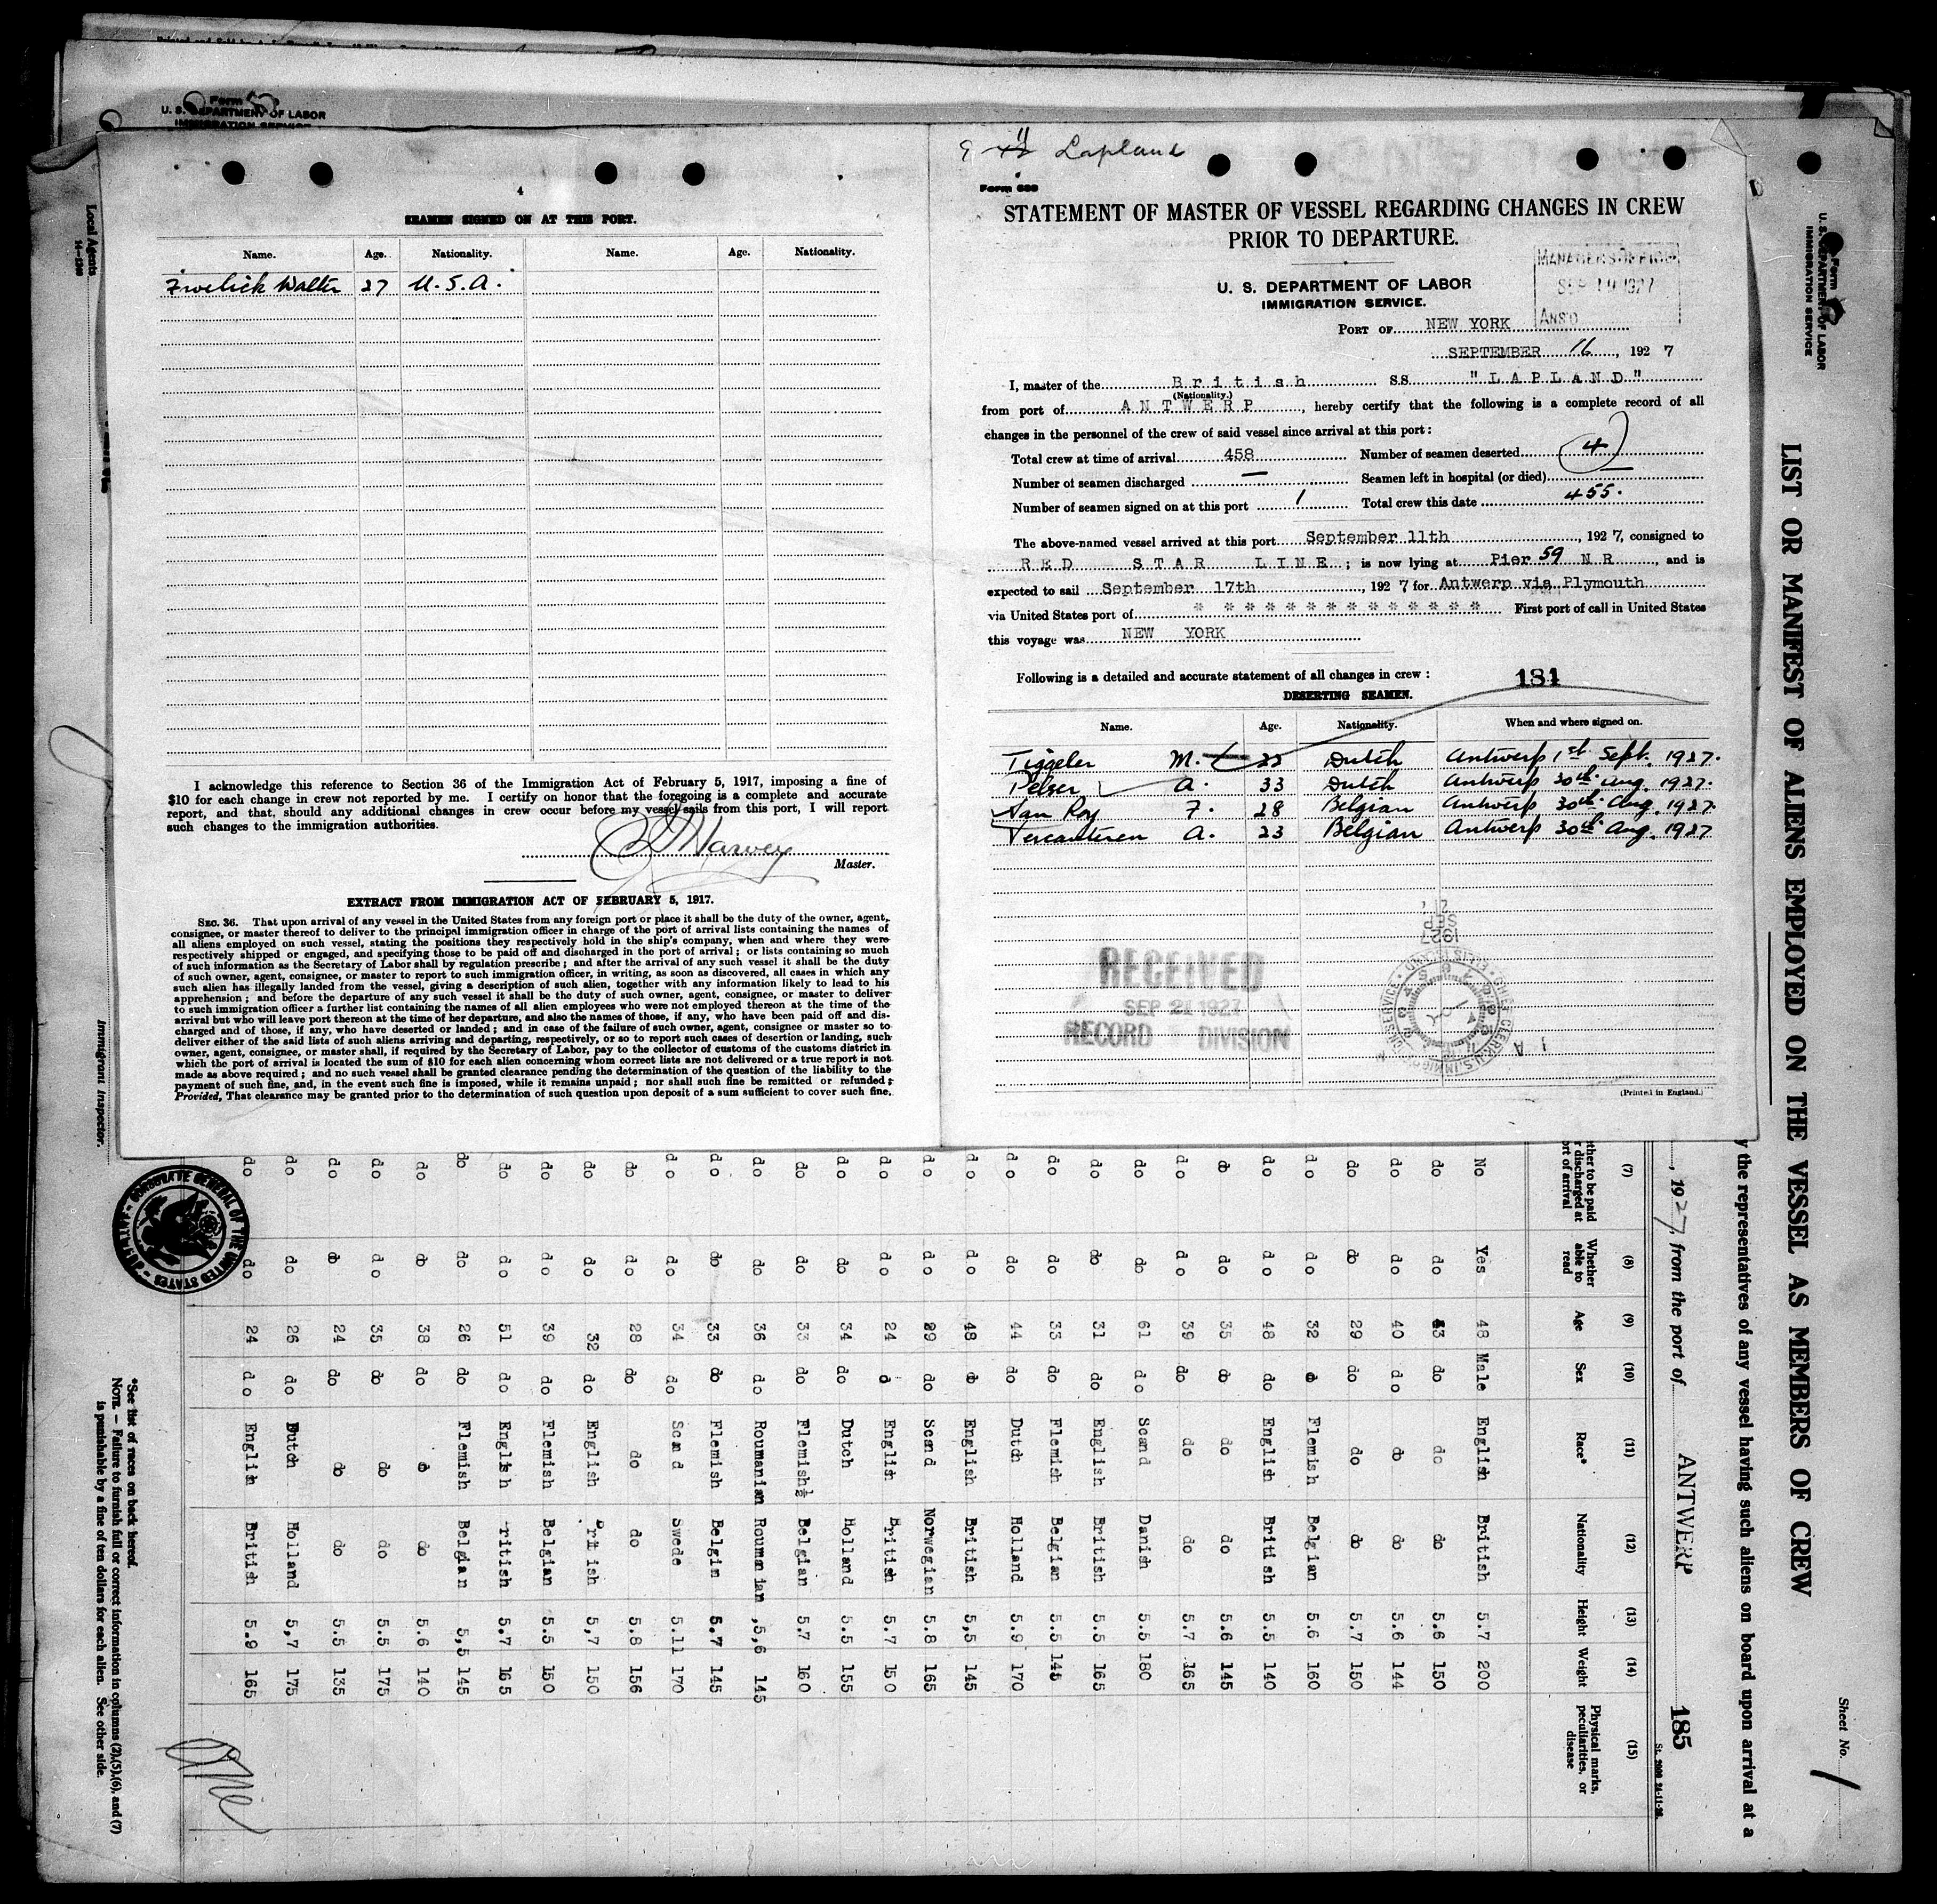 U. S. DEPARTMENT OF LABOR
IMMIGRATION SERVICE
Local Agents
14-1240
Immigrant Inspector.
4
SEAMEN SIGNED ON AT THIS PORT.
Name. Age. Nationality. Name. Age. Nationality.
Walter 27 U.S.A.
I acknowledge this reference to Section 36 of the Immigration Act of February 5, 1917, imposing a fine of
$10 for each change in crew not reported by me. I certify on honor that the foregoing is a complete and accurate
report, and that, should any additional changes in crew occur before my vessel sails from this port, I will report
such changes to the immigration authorities.
Harvey
Master.
EXTRACT FROM IMMIGRATION ACT OF FEBRUARY 5, 1917.
SEC. 36. That upon arrival of any vessel in the United States from any foreign port or place it shall be the duty of the owner, agent,
consignee, or master thereof to deliver to the principal immigration officer in charge of the port of arrival lists containing the names of
all aliens employed on such vessel, stating the positions they respectively hold in the ship's company, when and where they were
respectively shipped or engaged, and specifying those to be paid off and discharged in the port of arrival; or lists containing so much
of such information as the Secretary of Labor shall by regulation prescribe; and after the arrival of any such vessel it shall be the duty
of such owner, agent, consignee, or master to report to such immigration officer, in writing, as soon as discovered, all cases in which any
such alien has illegally landed from the vessel, giving a description of such alien, together with any information likely to lead to his
apprehension; and before the departure of any such vessel it shall be the duty of such owner, agent, consignee, or master to deliver
to such immigration officer a further list containing the names of all alien employees who were not employed thereon at the time of the
arrival but who will leave port thereon at the time of her departure, and also the names of those, if any, who have been paid off and dis-
charged and of those, if any, who have deserted or landed; and in case of the failure of such owner, agent, consignee or master so to
deliver either of the said lists of such aliens arriving and departing, respectively, or so to report such cases of desertion or landing, such
owner, agent, consignee, or master shall, if required by the Secretary of Labor, pay to the collector of customs of the customs district in
which the port of arrival is located the sum of $10 for each alien concerning whom correct lists are not delivered or a true report is not
made as above required; and no such vessel shall be granted clearance pending the determination of the question of the liability to the
payment of such fine, and, in the event such fine is imposed, while it remains unpaid; nor shall such fine be remitted or refunded;
Provided, That clearance may be granted prior to the determination of such question upon deposit of a sum sufficient to cover such fine.
Lapland
Form 689
STATEMENT OF MASTER OF VESSEL REGARDING CHANGES IN CREW
PRIOR TO DEPARTURE.
MANAGER'S OFFICE
SEP 1927
ANS'D
U. S. DEPARTMENT OF LABOR
IMMIGRATION SERVICE.
PORT OF NEW YORK
SEPTEMBER 16, 1927
I, master of the British SS "LAPLAND"
(Nationality.)
from port of ANTWERP, hereby certify that the following is a complete record of all
changes in the personnel of the crew of said vessel since arrival at this port:
Total crew at time of arrival 458 Number of seamen deserted 4
Number of seamen discharged — Seamen left in hospital (or died) —
Number of seamen signed on at this port 1 Total crew this date 455.
The above-named vessel arrived at this port September 11th, 1927, consigned to
RED STAR LINE; is now lying at Pier 59 N R, and is
expected to sail September 17th, 1927 for Antwerp via Plymouth
via United States port of * * * * * * * * * * * * * * First port of call in United States
this voyage was NEW YORK
Following is a detailed and accurate statement of all changes in crew: 181
DESERTING SEAMEN.
Name. Age. Nationality. When and where signed on.
Tiggeler M. 22 Dutch Antwerp 1st Sept. 1927.
Pelser A. 33 Dutch Antwerp 30th Aug. 1927.
Van Roy F. 28 Belgian Antwerp 30th Aug. 1927.
Vercauteren A. 23 Belgian Antwerp 30th Aug. 1927
RECEIVED
SEP 21 1927
RECORD DIVISION
(Printed in England.)
Form
U. S. DEPARTMENT OF LABOR
IMMIGRATION SERVICE
Sheet No. 1
LIST OR MANIFEST OF ALIENS EMPLOYED ON THE VESSEL AS MEMBERS OF CREW
y the representatives of any vessel having such aliens on board upon arrival at a
, 1927, from the port of ANTWERP 185
St. 2000 24-11-26.
(7) (8) (9) (10) (11) (12) (13) (14) (15)
ther to be paid r discharged at ort of arrival Whether able to read Age Sex Race* Nationality Height Weight Physical marks, peculiarities, or disease
No Yes 48 Male English British 5.7 200
do do 43 do do do 5.6 150
do do 40 do do do 5.6 144
do do 29 do do do 5.7 150
do do 32 do Flemish Belgian 5.6 160
do do 48 do English British 5.5 140
do do 35 do do do 5.6 145
do do 39 do do do 5.7 165
do do 61 do Scand Danish 5.5 180
do do 31 do English British 5.5 165
do do 33 do Flemish Belgian 5.5 145
do do 44 do Dutch Holland 5.9 170
do do 48 do English British 5,5 145
do do 29 do Scand Norwegian 5.8 165
do do 24 do English British 5.7 150
do do 34 do Dutch Holland 5.5 155
do do 33 do Flemish Belgian 5.7 160
do do 36 do Roumanian Roumanian 5,6 145
do do 33 do Flemish Belgin 5.7 145
do do 34 do Scand Swede 5.11 170
do do 28 do do do 5.8 156
do do 32 do English British 5,7 150
do do 39 do Flemish Belgian 5.5 150
do do 51 do English ritish 5.7 165
do do 26 do Flemish Belgian 5,5 145
do do 38 do do do 5.6 140
do do 35 do do do 5.5 175
do do 24 do do do 5.5 135
do do 26 do Dutch Holland 5,7 175
do do 24 do English British 5.9 165
CONSULATE GENERAL OF THE UNITED STATES
*See list of races on back hereof.
NOTE. — Failure to furnish full or correct information in columns (2),(5),(6), and (7)
is punishable by a fine of ten dollars for each alien. See other side.